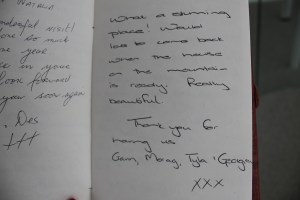 wonderful visit!
so much
your
in your
look forward
your soon again
Des
What a stunning
place! Would
love to come back
when the house
on the mountain
is ready. Really
beautiful.
Thank you for
having us
Gavin, Moag, Tyla + Georgia
XXX